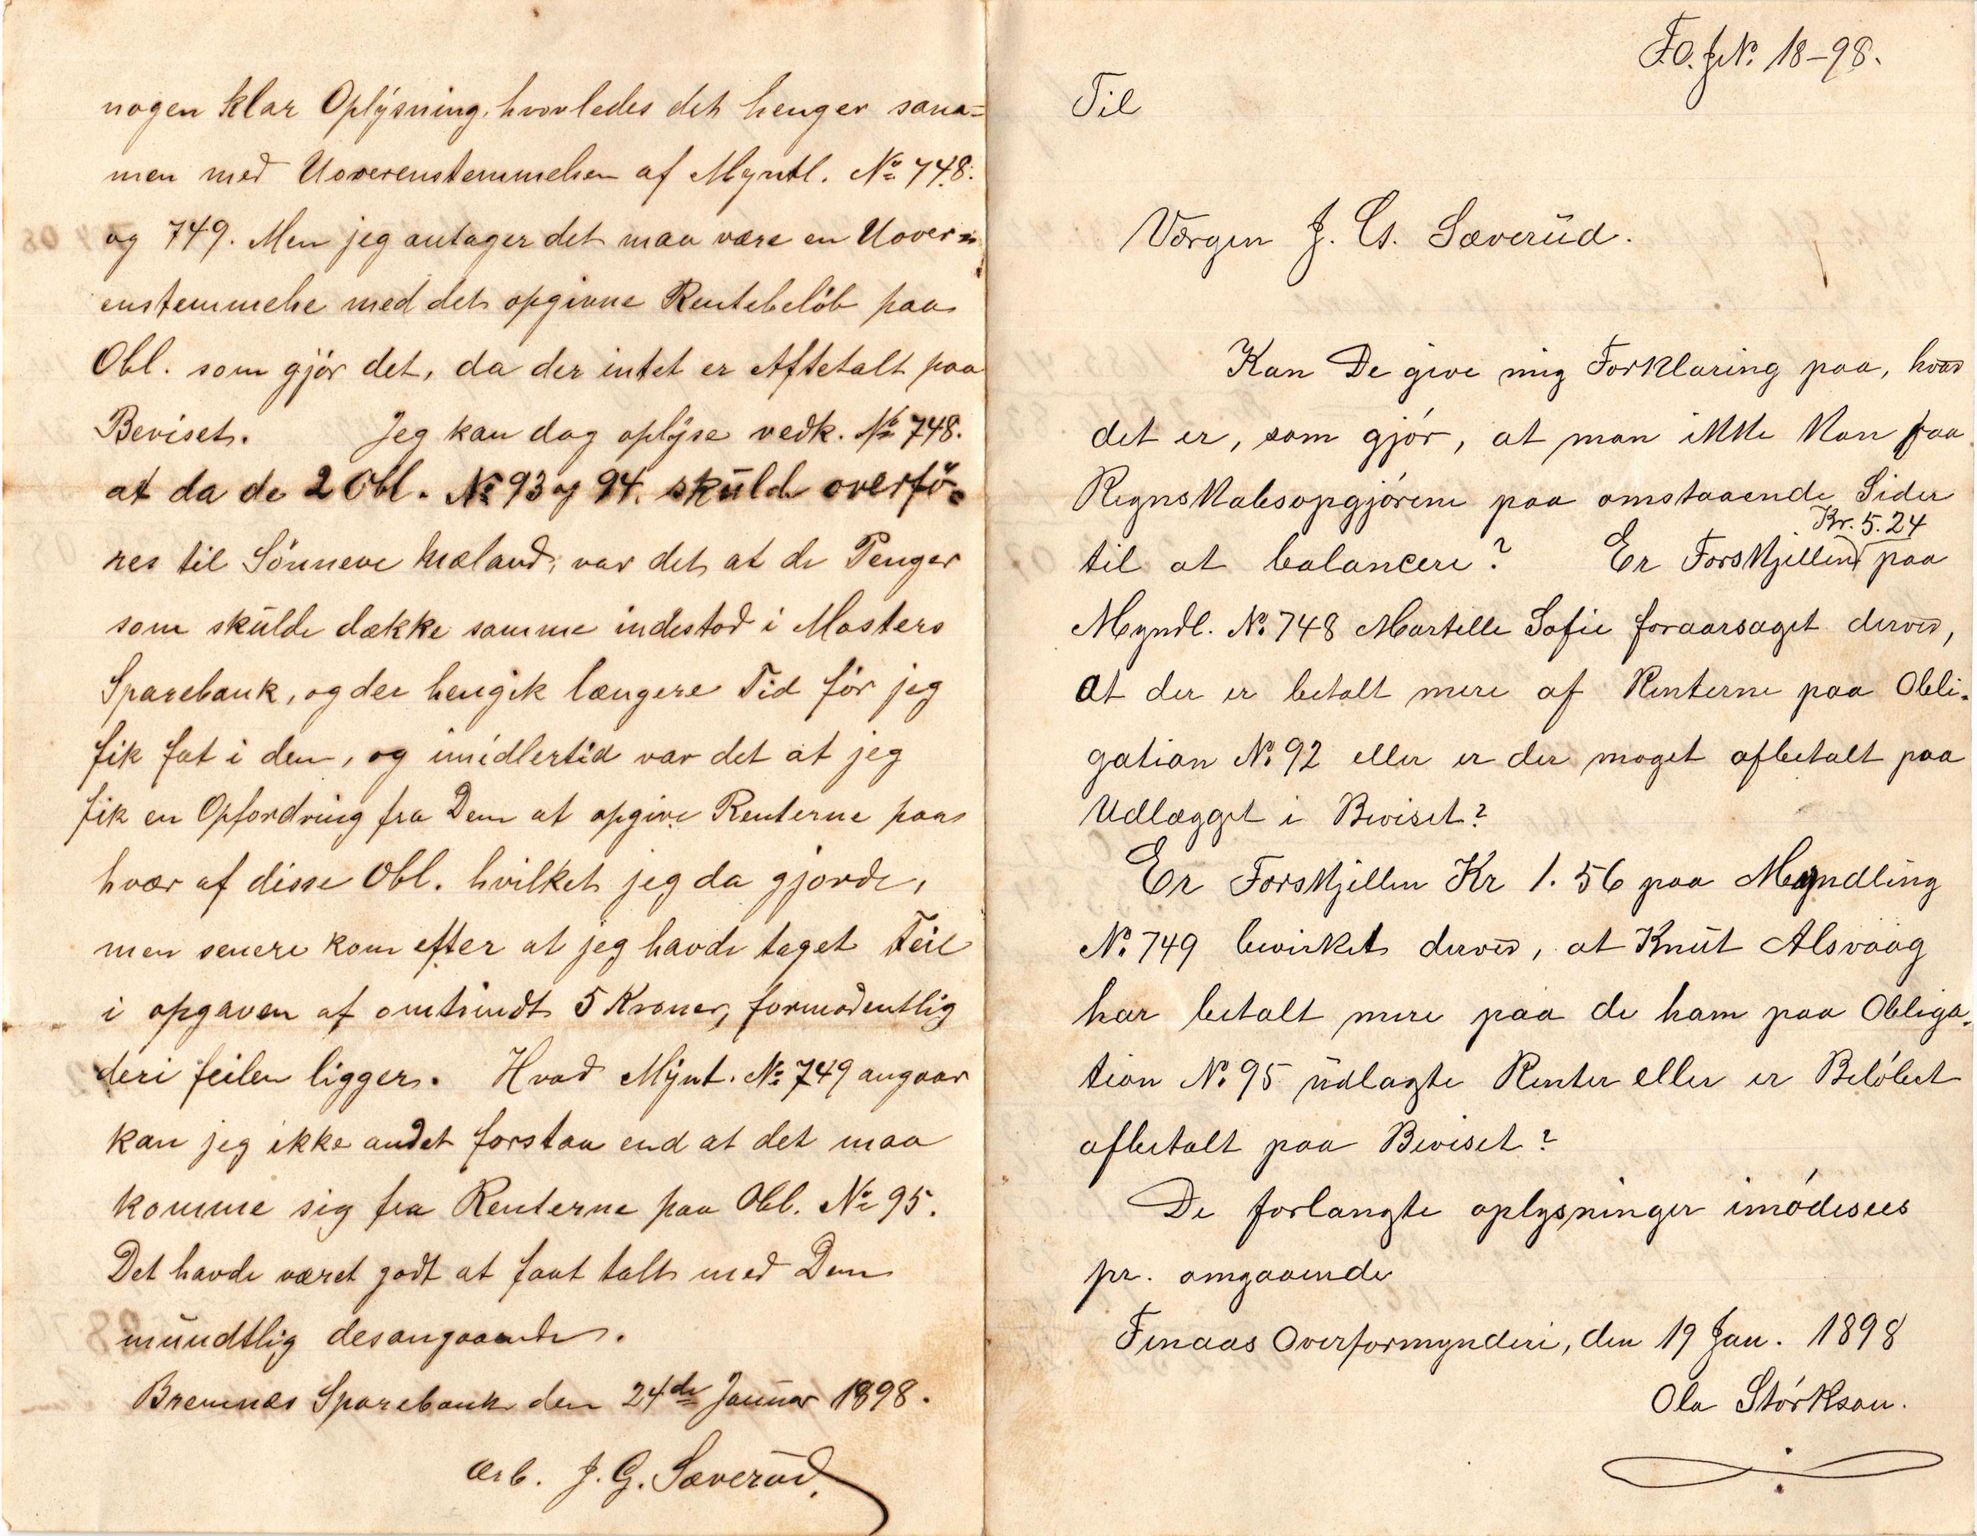 nogen klar Oplysning, hvorledes det henger sam=
men med Uoverenstemmelsen af Myntl. No 748.
og 749. Men jeg antager det maa være en Uover=
enstemmelse med det opgivne Rentebeløb paa
Obl. som gjör det, da der intet er Aftetalt paa
Beviset. Jeg kan dog oplyse vedk. No 748.
at da de 2 Obl. No 93 og 94. skulde overfö-
res til Sönneve Mæland, var det at de Penger
som skulde dække samme indestod i Mosters
Sparebank, og der hengik længere Tid før jeg
fik fat i dem, og imidlertid var det at jeg
fik en Opfordring fra Dem at opgive Renterne paa
hvær af disse Obl. hvilket jeg da gjorde,
men senere kom efter at jeg havde taget Feil
i opgaven af omtrindt 5 Kroner, formodentlig
deri feilen ligger. Hvad Mynt. No 749 angaar
kan jeg ikke andet forstaa end at det maa
komme sig fra Renterne paa Obl. No 95.
Det havde været godt at faat talt med Dem
mundtlig desangaaende.
Bremnæs Sparebank den 24de Januar 1898.
ærb. J. G. Sæverud.
F.O. J.No. 18-98.
Til
Værgen J. G. Sæverud.
Kan De give mig Forklaring paa, hvad
det er, som gjör, at man ikke kan faa
Regnskabsopgjörene paa omstaaende Sider
til at balancere? Er Forskjellen Kr. 5.24 paa
Myndl. No. 748 Martelle Sofie foraarsaget derved,
at der er betalt mere af Renterne paa Obli-
gation No. 92 eller er der noget afbetalt paa
Udlægget i Beviset?
Er Forskjellen Kr 1.56 paa Myndling
No. 749 bevirket derved, at Knut Alsvaag
har betalt mere paa de ham paa Obliga-
tion No. 95 udlagte Renter eller er Belöbet
afbetalt paa Beviset?
De forlangte oplysninger imödesees
pr. omgaaende
Finaas Overformynderi, den 19 Jan. 1898
Ola Störkson.